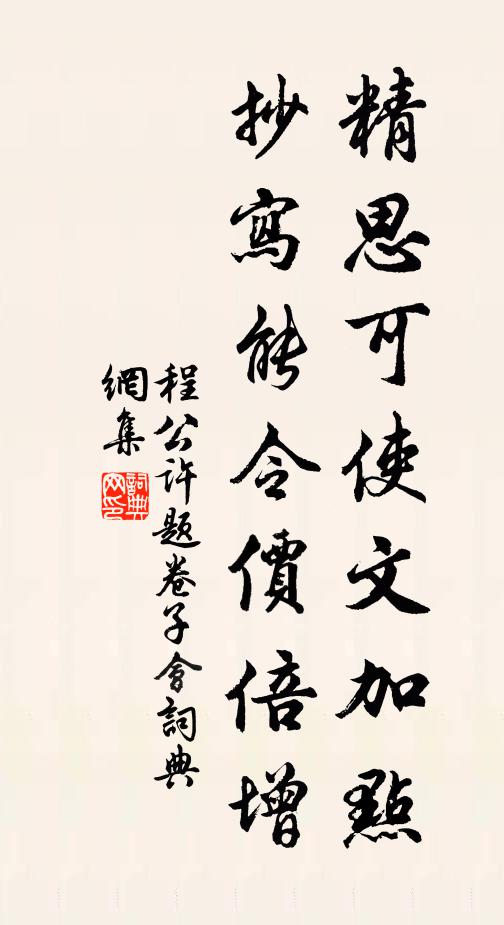 精思可使文加點
抄寫能令價倍增
程公許題卷子會詞典
網集
詞典
网印